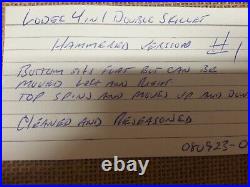 LODGE 4 IN 1 DOUBLE SKILLET
HAMMERED VERSION #1
BOTTOM SITS FLAT BUT CAN BE
MOVED LEFT AND RIGHT
TOP SPINS AND MOVES UP AND DOWN
CLEANED AND RESEASONED
080823-0